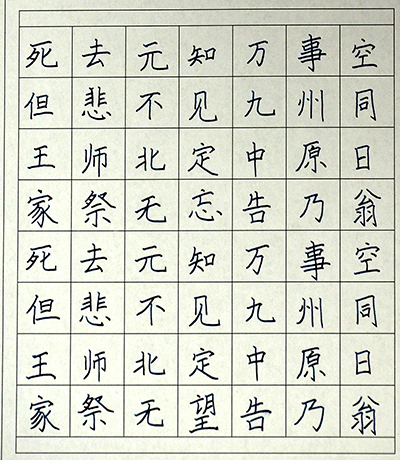 死去元知万事空
但悲不见九州同
王师北定中原日
家祭无忘告乃翁
死去元知万事空
但悲不见九州同
王师北定中原日
家祭无望告乃翁